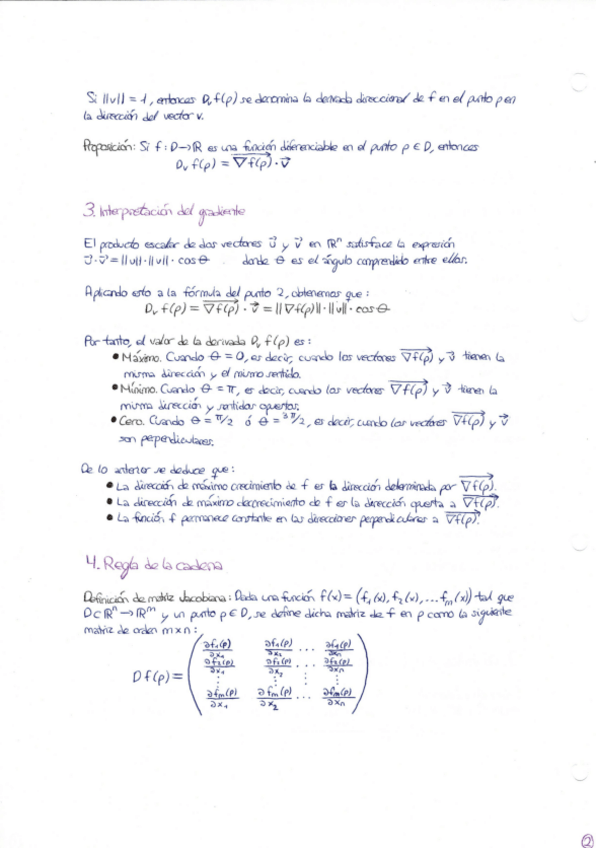 Si ||v|| = 1, entonces Dᵥ f(p) se denomina la derivada direccional de f en el punto p en
la dirección del vector v.
Proposición: Si f: D→ℝ es una función diferenciable en el punto p ∈ D, entonces
Dᵥ f(p) = ∇f(p) · v⃗
3. Interpretación del gradiente
El producto escalar de dos vectores u⃗ y v⃗ en ℝⁿ satisface la expresión
u⃗ · v⃗ = ||u|| · ||v|| · cos θ . donde θ es el ángulo comprendido entre ellos.
Aplicando esto a la fórmula del punto 2, obtenemos que:
Dᵥ f(p) = ∇f(p) · v⃗ = ||∇f(p)|| · ||v|| · cos θ
Por tanto, el valor de la derivada Dᵥ f(p) es:
• Máximo. Cuando θ = 0, es decir, cuando los vectores ∇f(p) y v⃗ tienen la
misma dirección y el mismo sentido.
• Mínimo. Cuando θ = π, es decir, cuando los vectores ∇f(p) y v⃗ tienen la
misma dirección y sentidos opuestos.
• Cero. Cuando θ = π/2 ó θ = 3π/2, es decir, cuando los vectores ∇f(p) y v⃗
son perpendiculares.
De lo anterior se deduce que:
• La dirección de máximo crecimiento de f es la dirección determinada por ∇f(p).
• La dirección de máximo decrecimiento de f es la dirección opuesta a ∇f(p).
• La función f permanece constante en las direcciones perpendiculares a ∇f(p).
4. Regla de la cadena
Definición de matriz Jacobiana: Dada una función f(x) = (f₁(x), f₂(x), ... fₘ(x)) tal que
D⊂ℝⁿ→ℝᵐ y un punto p ∈ D, se define dicha matriz de f en p como la siguiente
matriz de orden m×n:
Df(p) = ( ∂f₁(p)/∂x₁ ∂f₁(p)/∂x₂ ... ∂f₁(p)/∂xₙ
∂f₂(p)/∂x₁ ∂f₂(p)/∂x₂ ... ∂f₂(p)/∂xₙ
⋮ ⋮ ⋮
∂fₘ(p)/∂x₁ ∂fₘ(p)/∂x₂ ... ∂fₘ(p)/∂xₙ )
2